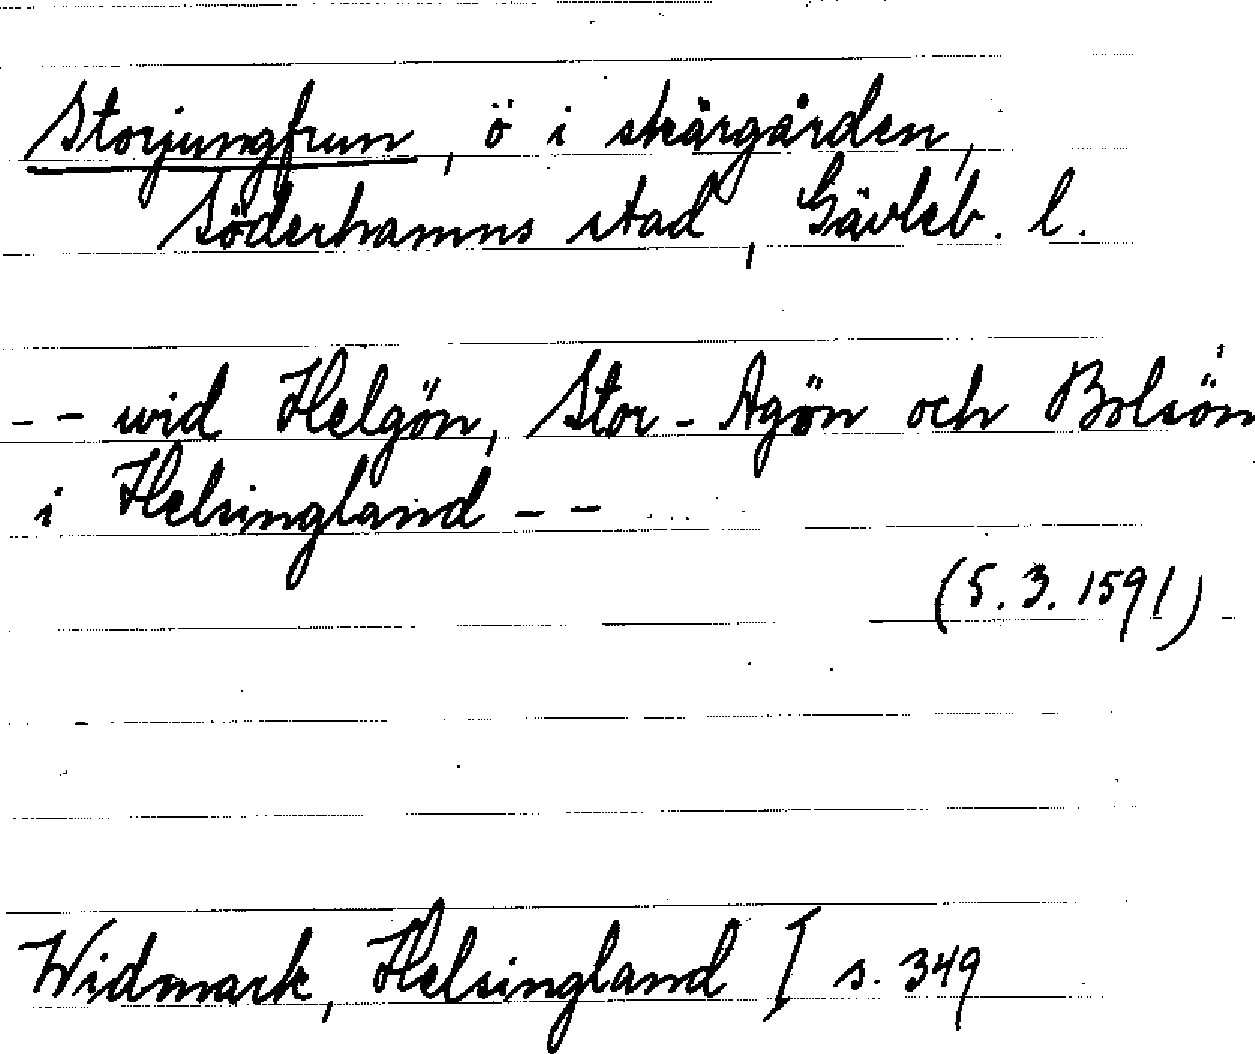 Storjungfrun, ö i skärgården,
Söderhamns stad, Gävleb. l.
-- wid Helgön, Stor-Agön och Bolsön
i Helsingland --
(5.3.1591)
Widmark, Helsingland I s. 349